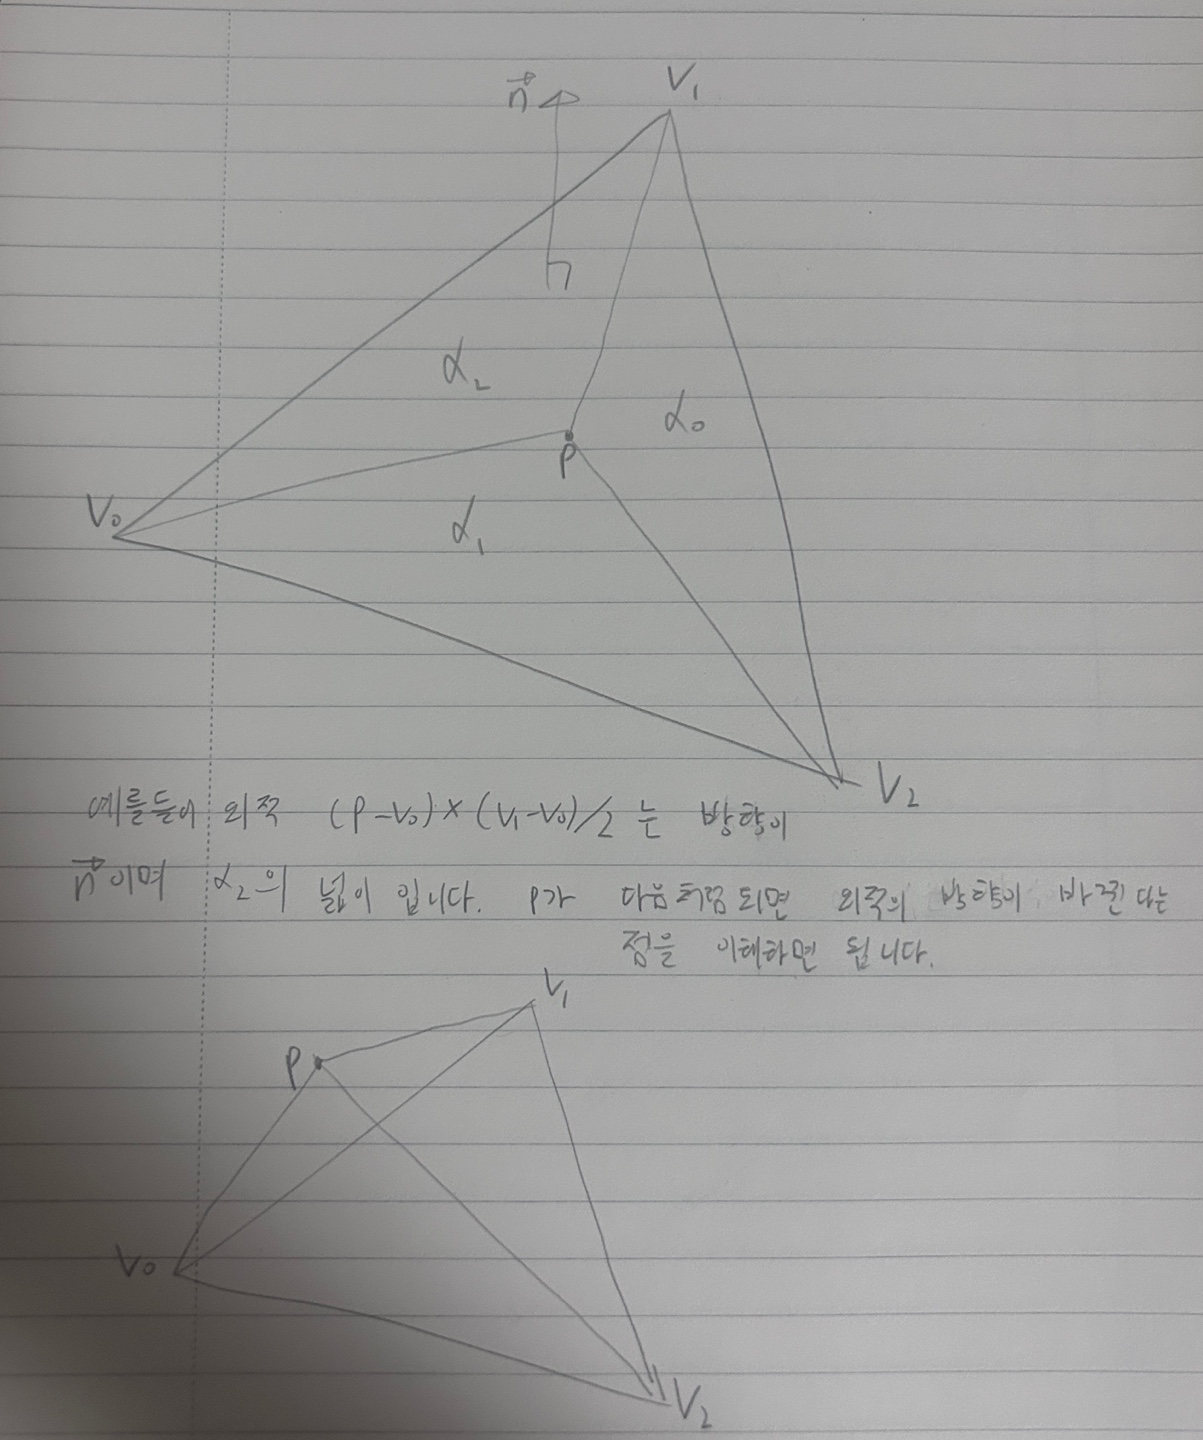 n⃗
V₁
α₂
α₀
P
V₀
α₁
V₂
예를들어 외적 (P-V₀)×(V₁-V₀)/2 는 방향이
n⃗이며 α₂의 넓이 입니다. P가 다음처럼 되면 외적의 방향이 바뀐다는
점을 이해하면 됩니다.
V₁
P
V₀
V₂